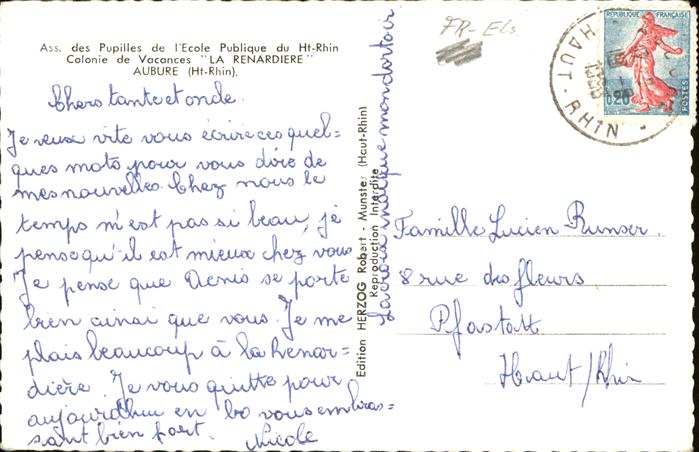 Ass. des Pupilles de l'Ecole Publique du Ht-Rhin
Colonie de Vacances "LA RENARDIERE"
AUBURE (Ht-Rhin).
Chers tante et oncle.
Je veux vite vous écrire ces quel=
ques mots pour vous dire de
mes nouvelles. Chez nous le
temps m'est pas si beau, je
pense qu'il est mieux chez vous
Je pense que Denis se porte
bien ainsi que vous. Je me
plais beaucoup à la Renar=
dière. Je vous quitte pour
aujourdhui en vous embras=
sant bien fort.
Nicole
Edition HERZOG Robert - Munster (Haut-Rhin)
Reproduction Interdite
La croix indique mon dortoir
FR-Els.
REPUBLIQUE FRANÇAISE
0,20
POSTES
HAUT-RHIN
Famille Lucien Runser.
8 rue des fleurs
Pfastatt
Haut/Rhin